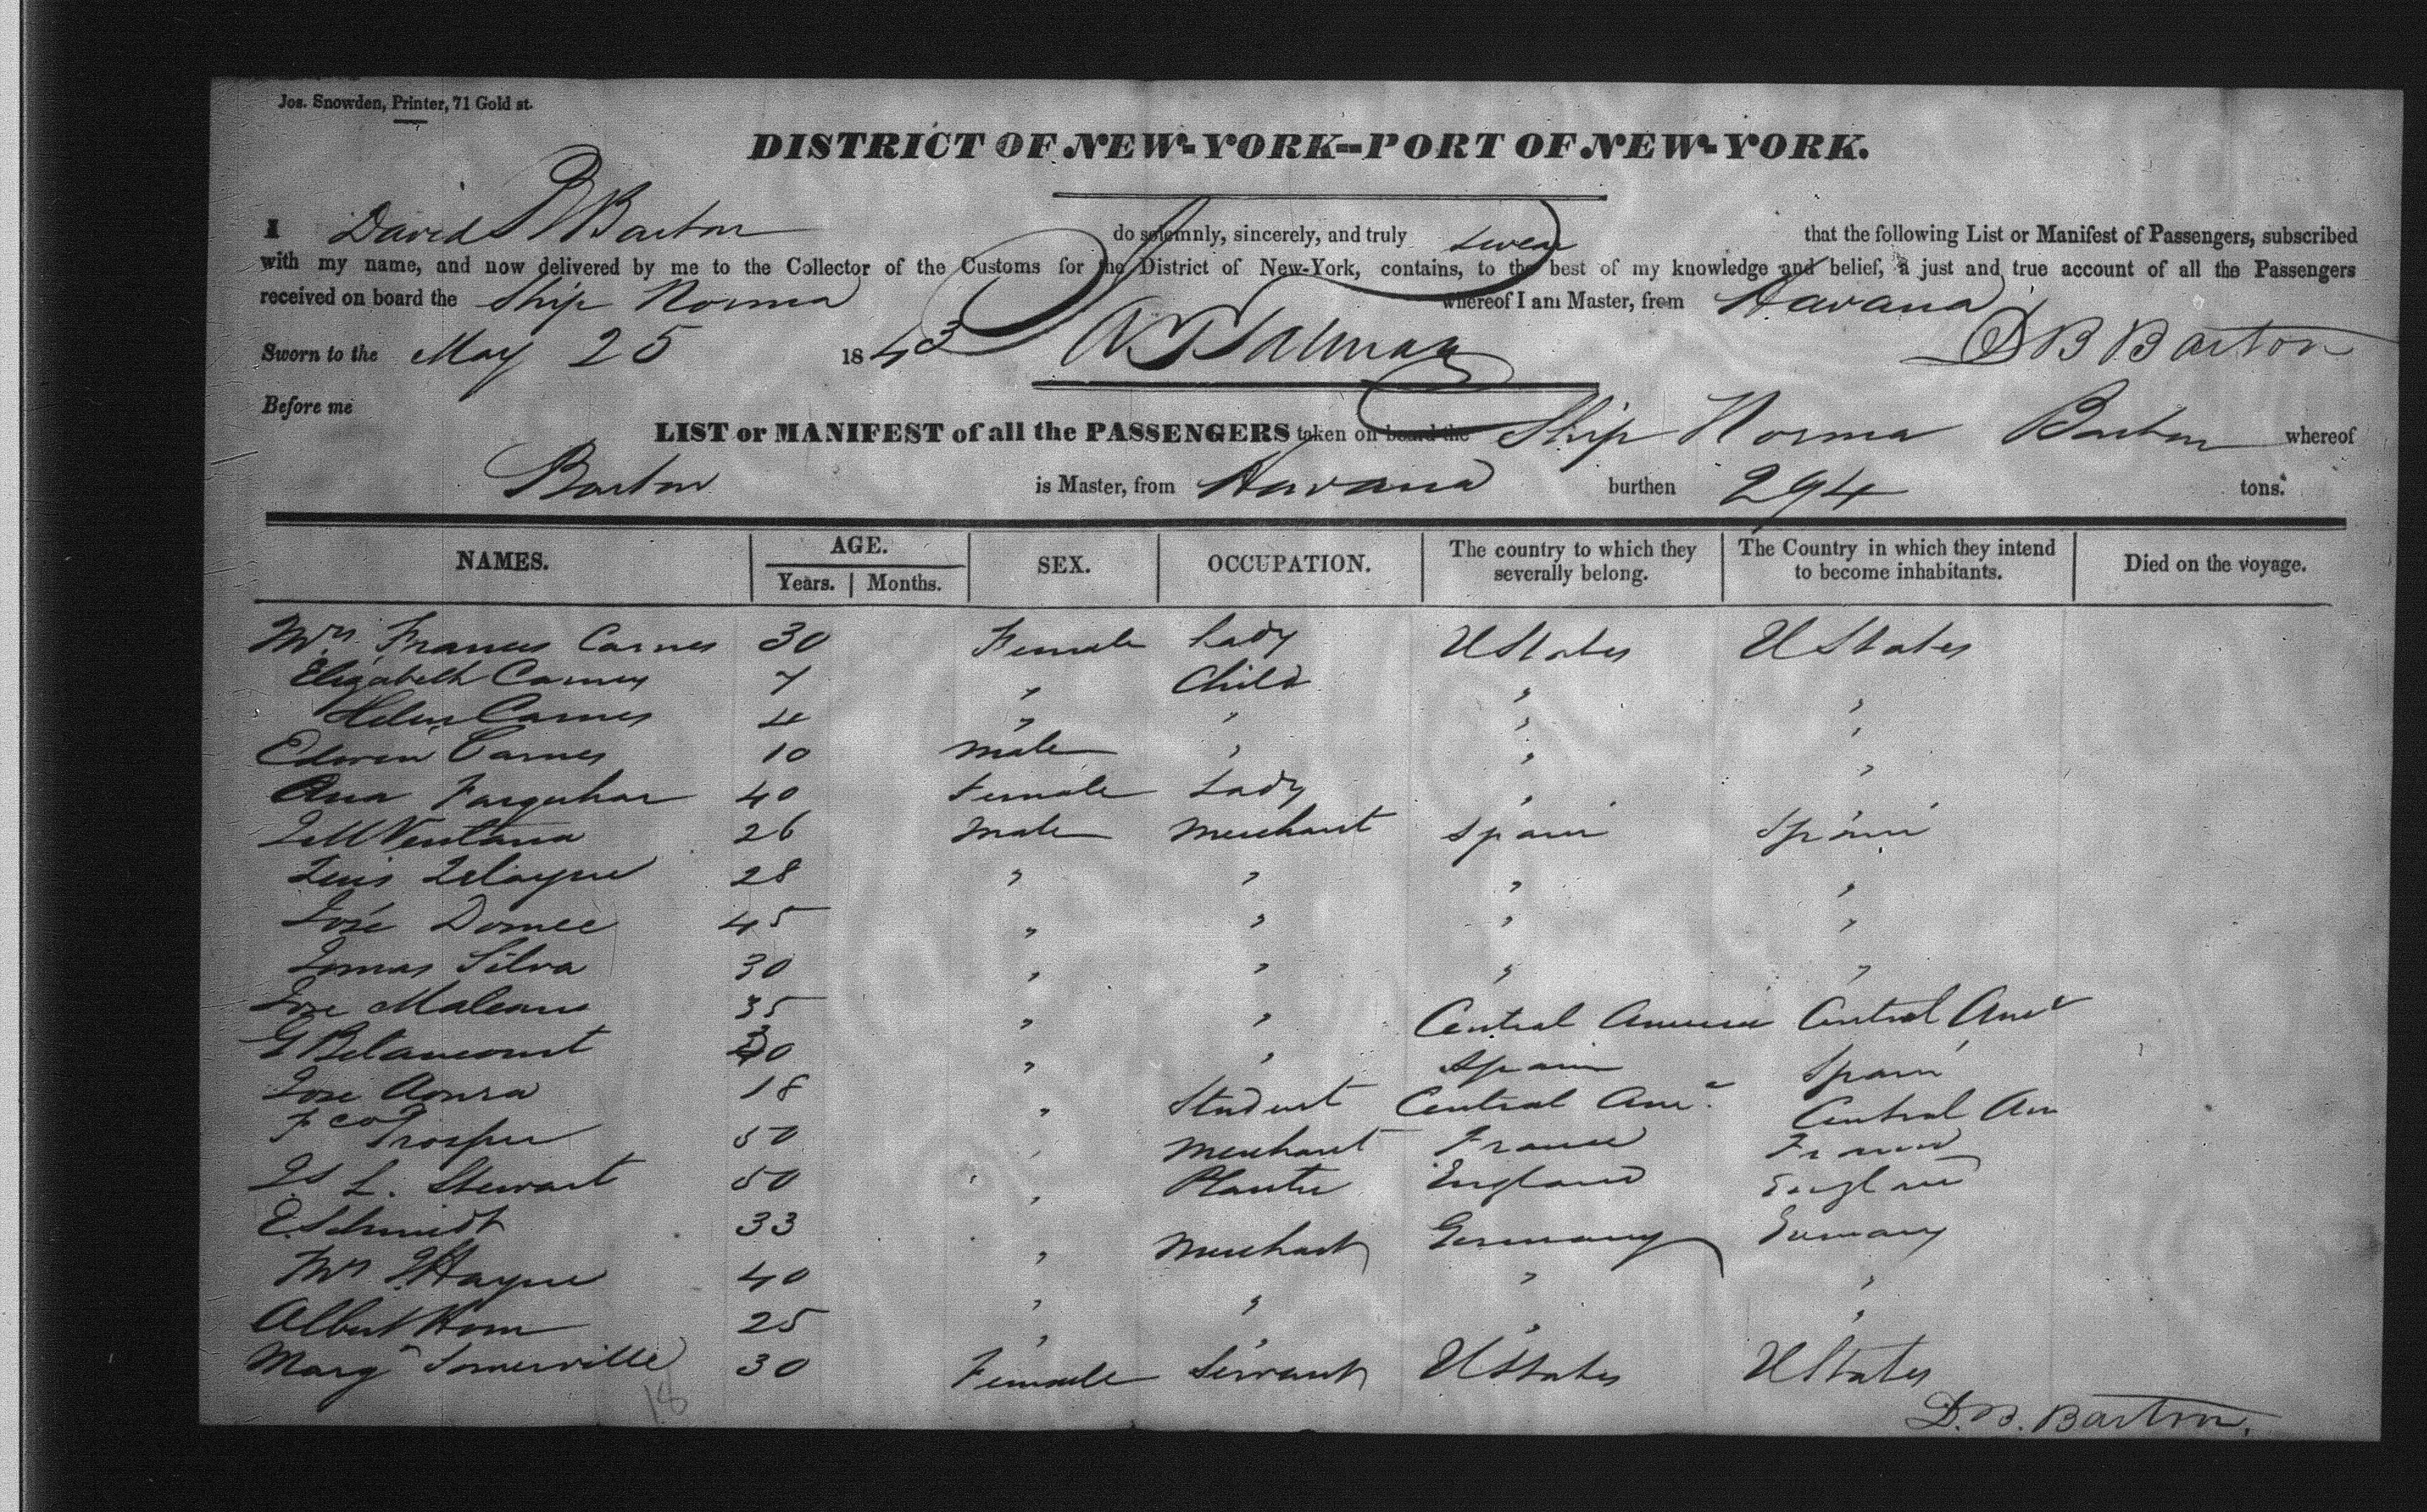 Jos. Snowden, Printer, 71 Gold st.
DISTRICT OF NEW-YORK--PORT OF NEW-YORK.
I David B Barton do solemnly, sincerely, and truly swear that the following List or Manifest of Passengers, subscribed
with my name, and now delivered by me to the Collector of the Customs for the District of New-York, contains, to the best of my knowledge and belief, a just and true account of all the Passengers
received on board the Ship Norma whereof I am Master, from Havana
Sworn to the May 25 1843 D B Barton
Before me
LIST or MANIFEST of all the PASSENGERS taken on board the Ship Norma Barton whereof
Barton is Master, from Havana burthen 294 tons.
NAMES. AGE. SEX. OCCUPATION. The country to which they severally belong. The Country in which they intend to become inhabitants. Died on the voyage.
Years. Months.
Mrs. Frances Carnes 30 Female Lady UStates UStates
Elizabeth Carnes 7 " Child " "
Helen Carnes 4 " " " "
Edwin Carnes 10 Male " " "
Ana Farquhar 40 Female Lady "
Ventana 26 Male Merchant Spain Spain
Luis 28 " " " "
José 45 " " " "
Tomas Silva 30 " " " "
Jose 35 " " Central America Central Ama
G Betancourt 30 " " Spain Spain
Jose 18 " Student Central Ama. Central Am
Fco Prosper 50 " Merchant France France
Js L. Stewart 50 " Planter England England
E. Schmidt 33 " Merchant Germany Germany
Hayne 40 " " " "
Albert Horn 25 " " " "
Margt Somerville 30 Female Servant UStates UStates
18
D. B. Barton.